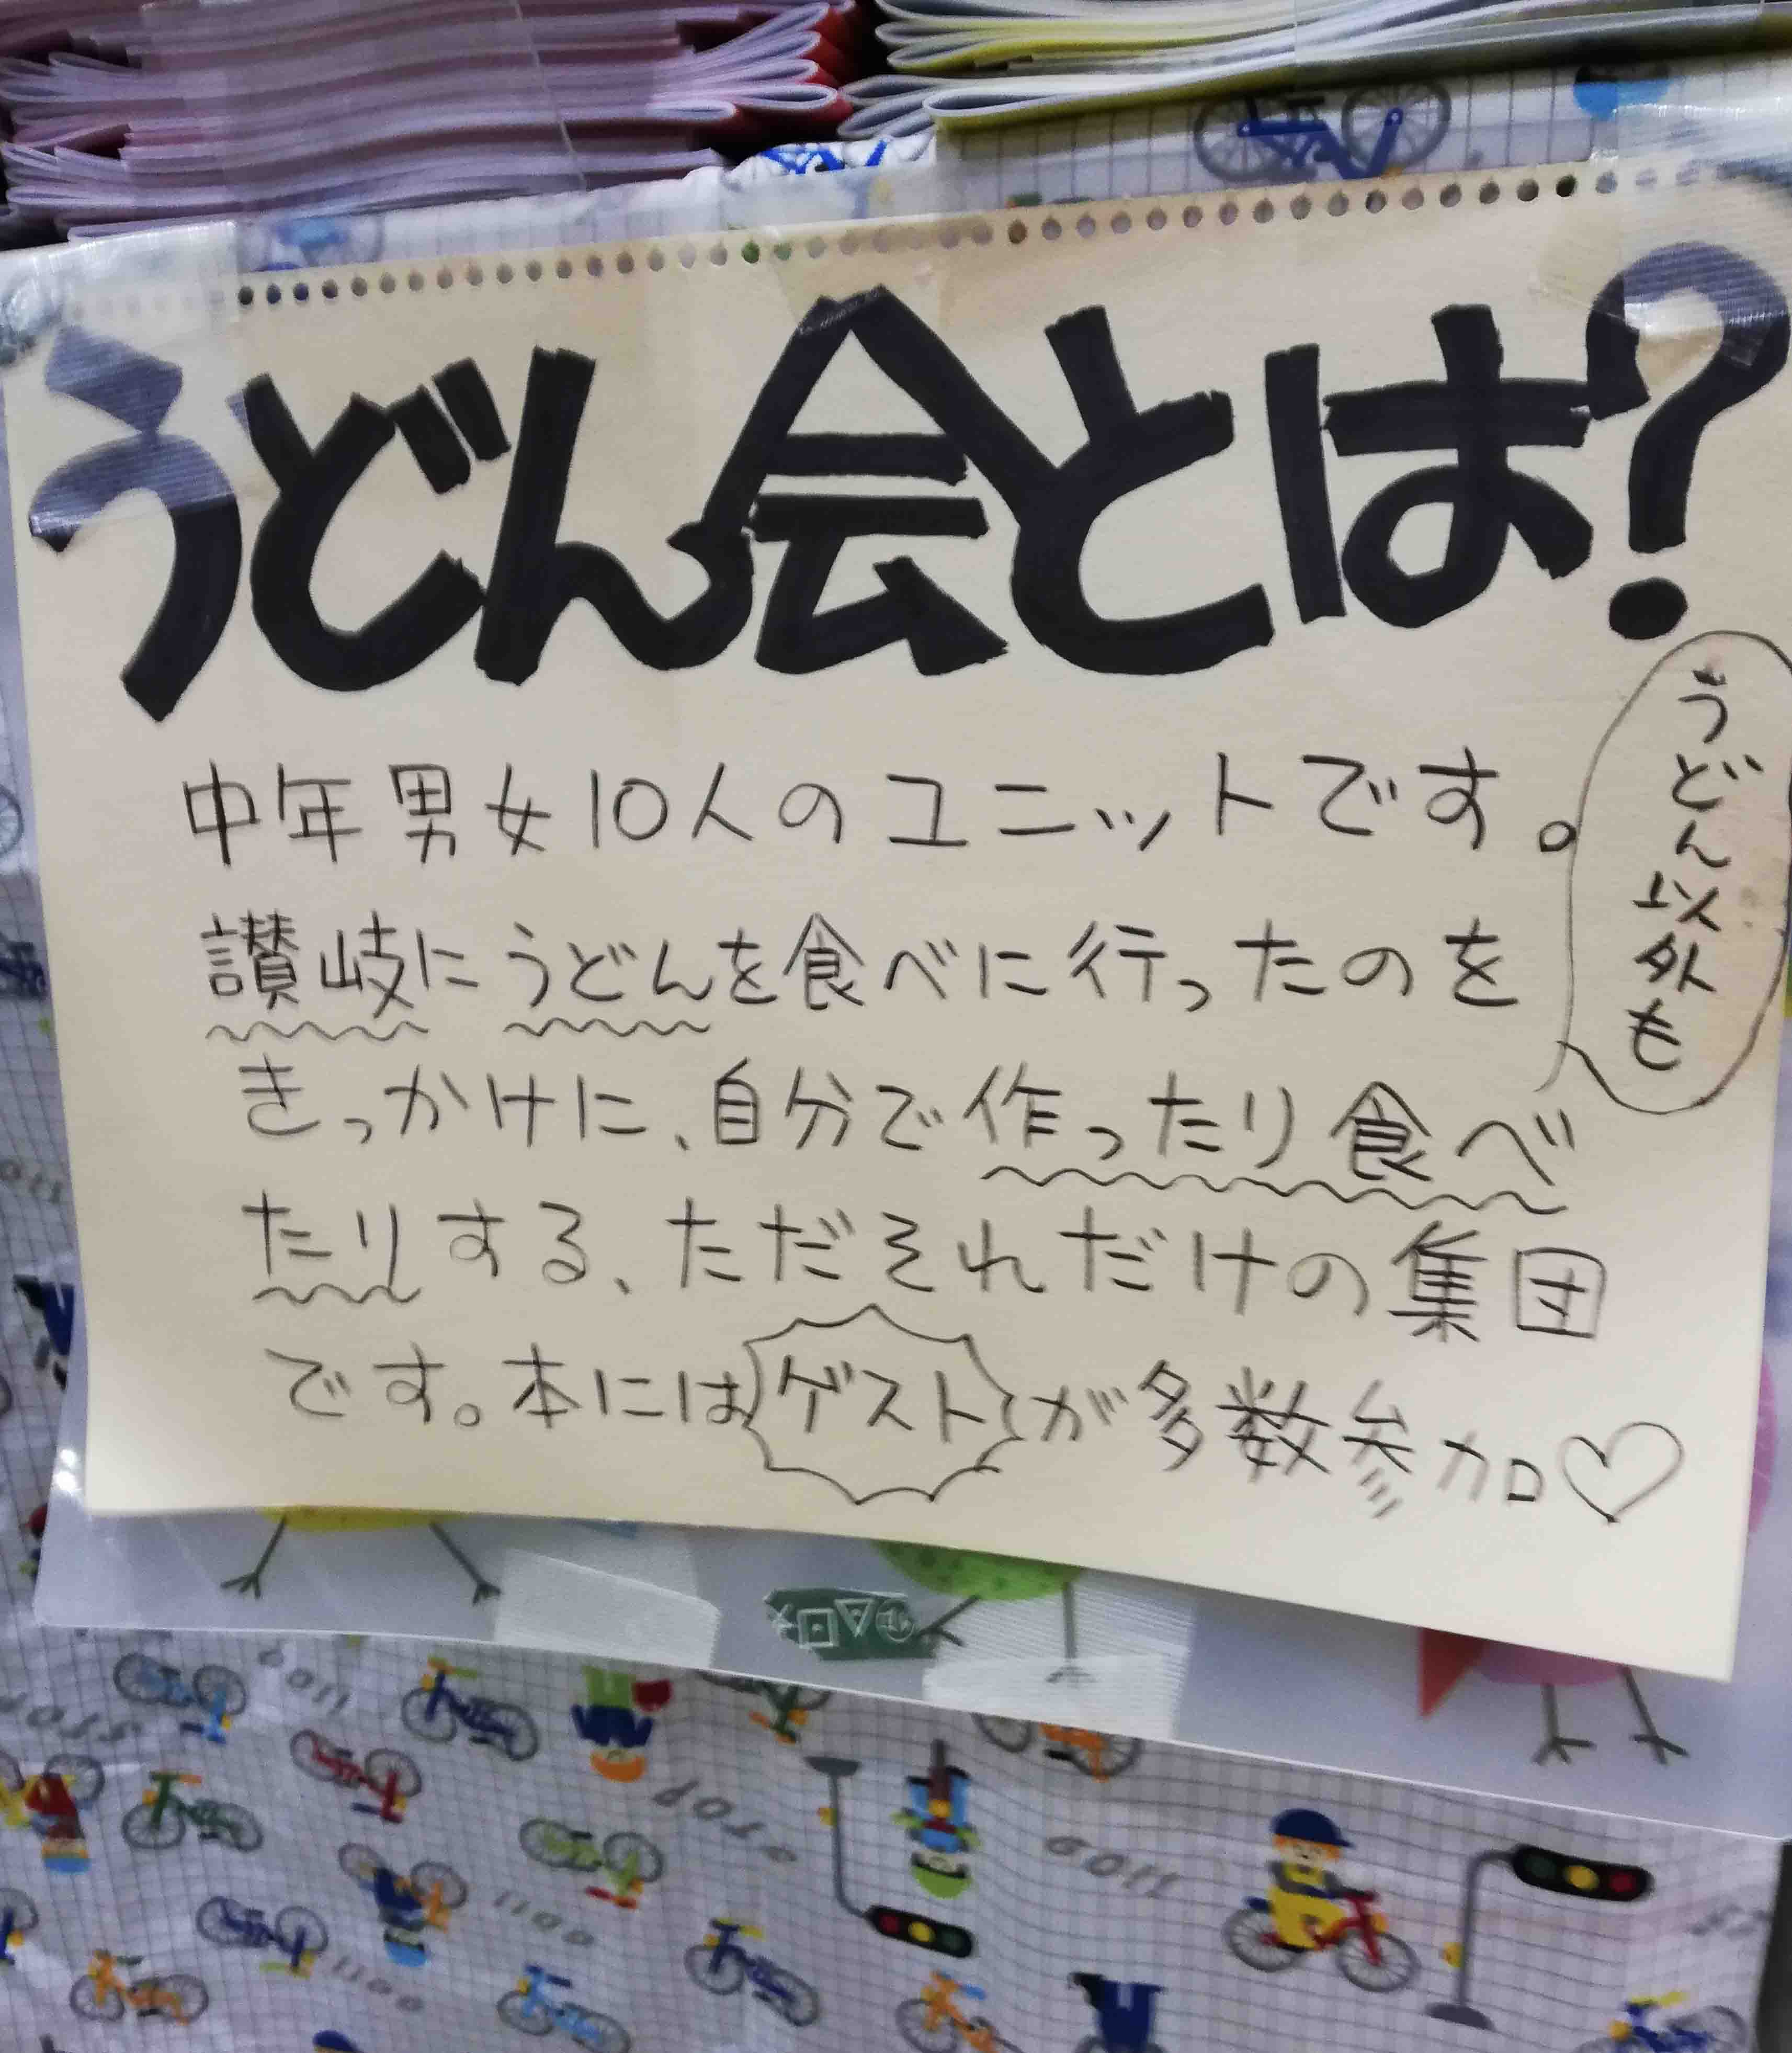 うどん会とは?
うどん以外も
中年男女10人のユニットです。
讃岐にうどんを食べに行ったのを
きっかけに、自分で作ったり食べ
たりする、ただそれだけの集団
です。本にはゲストが多数参加♡